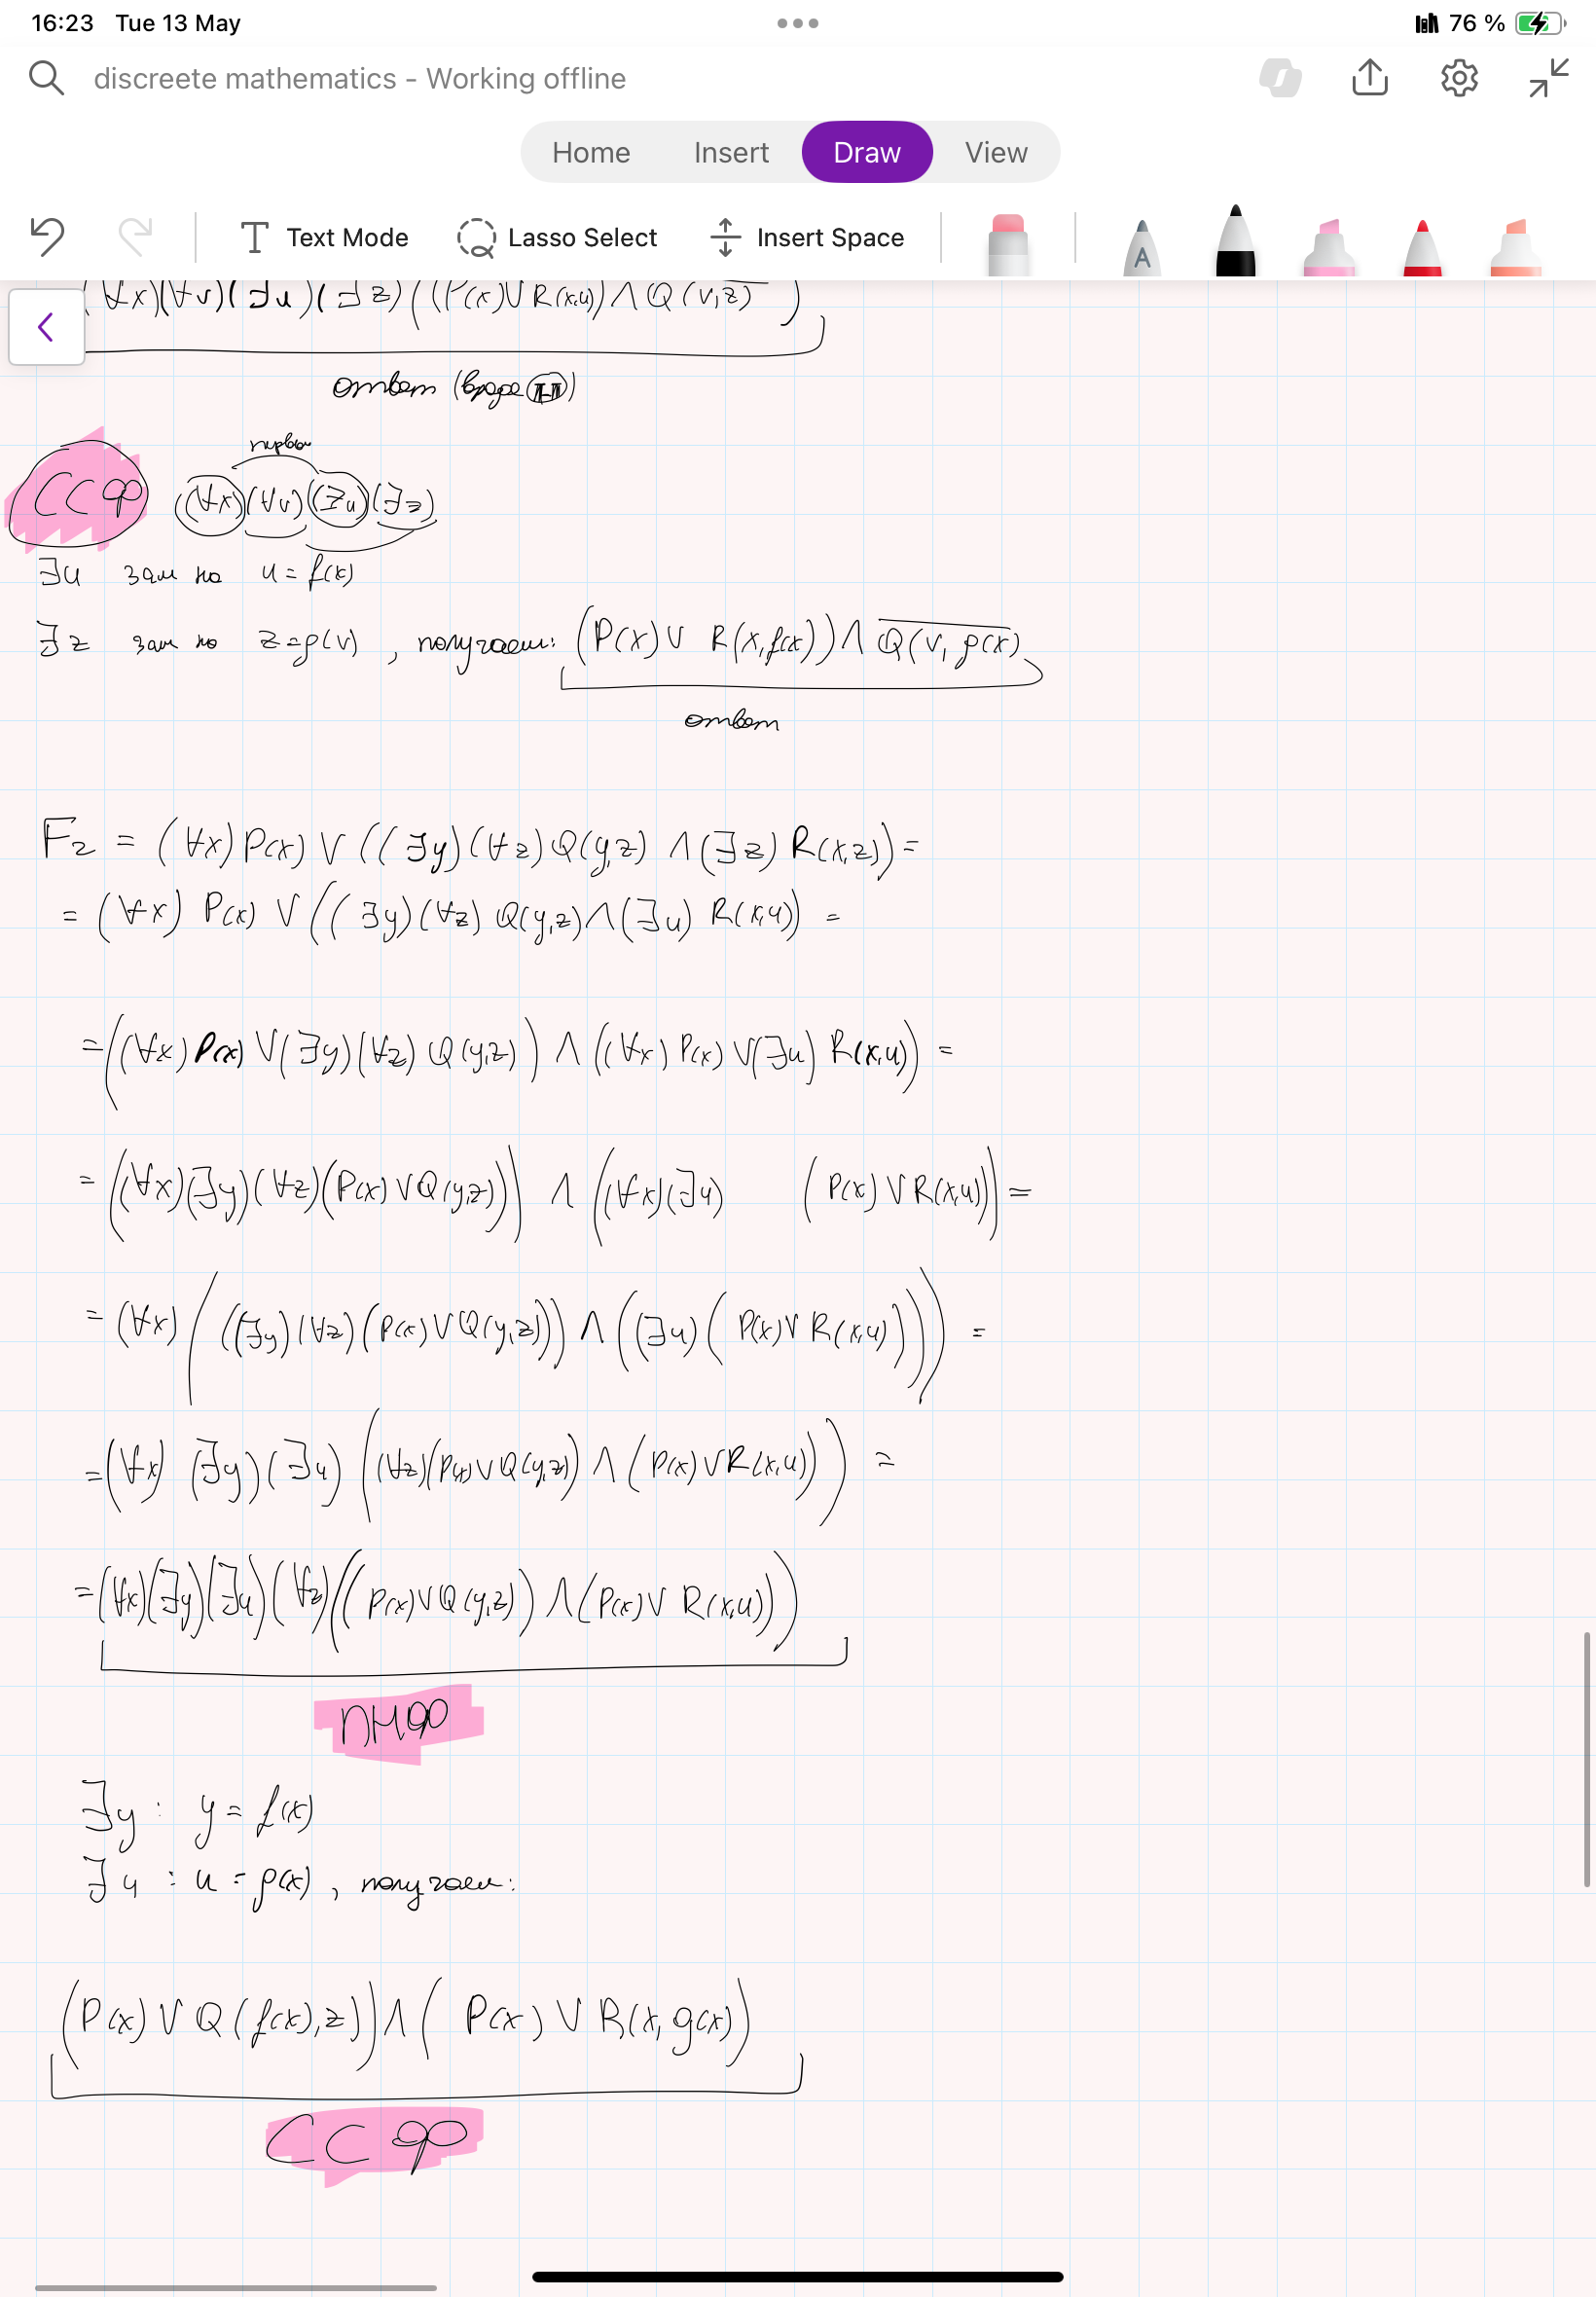 16:23 Tue 13 May
76 %
discreete mathematics - Working offline
Home Insert Draw View
Text Mode Lasso Select Insert Space A
(∀x)(∀v)(∃u)(∃z)((P(x)∨R(x,u))∧Q(v,z))
ответ (вроде П)
первые
ССФ (∀x)(∀v)(∃u)(∃z)
∃u зам на u = f(x)
∃z зам на z = g(v) , получаем: (P(x)∨ R(x,f(x))∧ Q̅(̅v̅,̅ ̅g̅(̅x̅)̅
ответ
F₂ = (∀x)P(x) ∨ ((∃y)(∀z)Q(y,z) ∧(∃z) R(x,z)) =
= (∀x) P(x) ∨ ((∃y)(∀z) Q(y,z)∧(∃u) R(x,u)) =
= ((∀x) P(x) ∨(∃y)(∀z) Q(y,z)) ∧ ((∀x) P(x) ∨(∃u) R(x,u)) =
= ((∀x)(∃y)(∀z)(P(x)∨Q(y,z))) ∧ ((∀x)(∃u) (P(x)∨R(x,u)) =
= (∀x) (((∃y)(∀z)(P(x)∨Q(y,z))) ∧ ((∃u)( P(x)∨ R(x,u)))) =
= (∀x) (∃y)(∃u) ((∀z)(P(x)∨Q(y,z)) ∧ (P(x)∨R(x,u))) =
= (∀x)(∃y)(∃u)(∀z)((P(x)∨Q(y,z)) ∧(P(x)∨ R(x,u)))
ПНФ
∃y : y = f(x)
∃u : u = g(x) , получаем:
(P(x) ∨ Q(f(x),z))∧( P(x) ∨ R(x, g(x))
ССФ